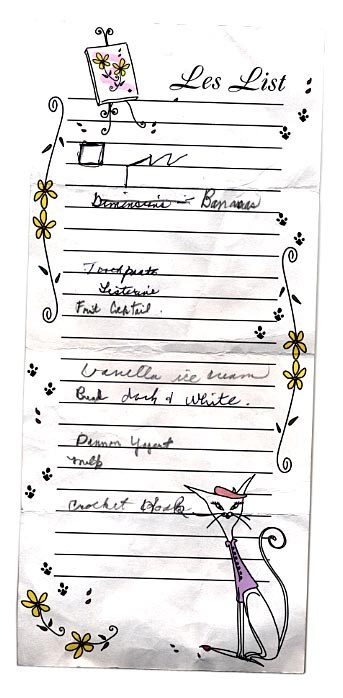 Les List
Bananas
Toothpaste
Listerine
Fruit Coktail.
Vanilla ice cream
Bread dark & white.
Dannon Yogurt
milk
Crochet Hook